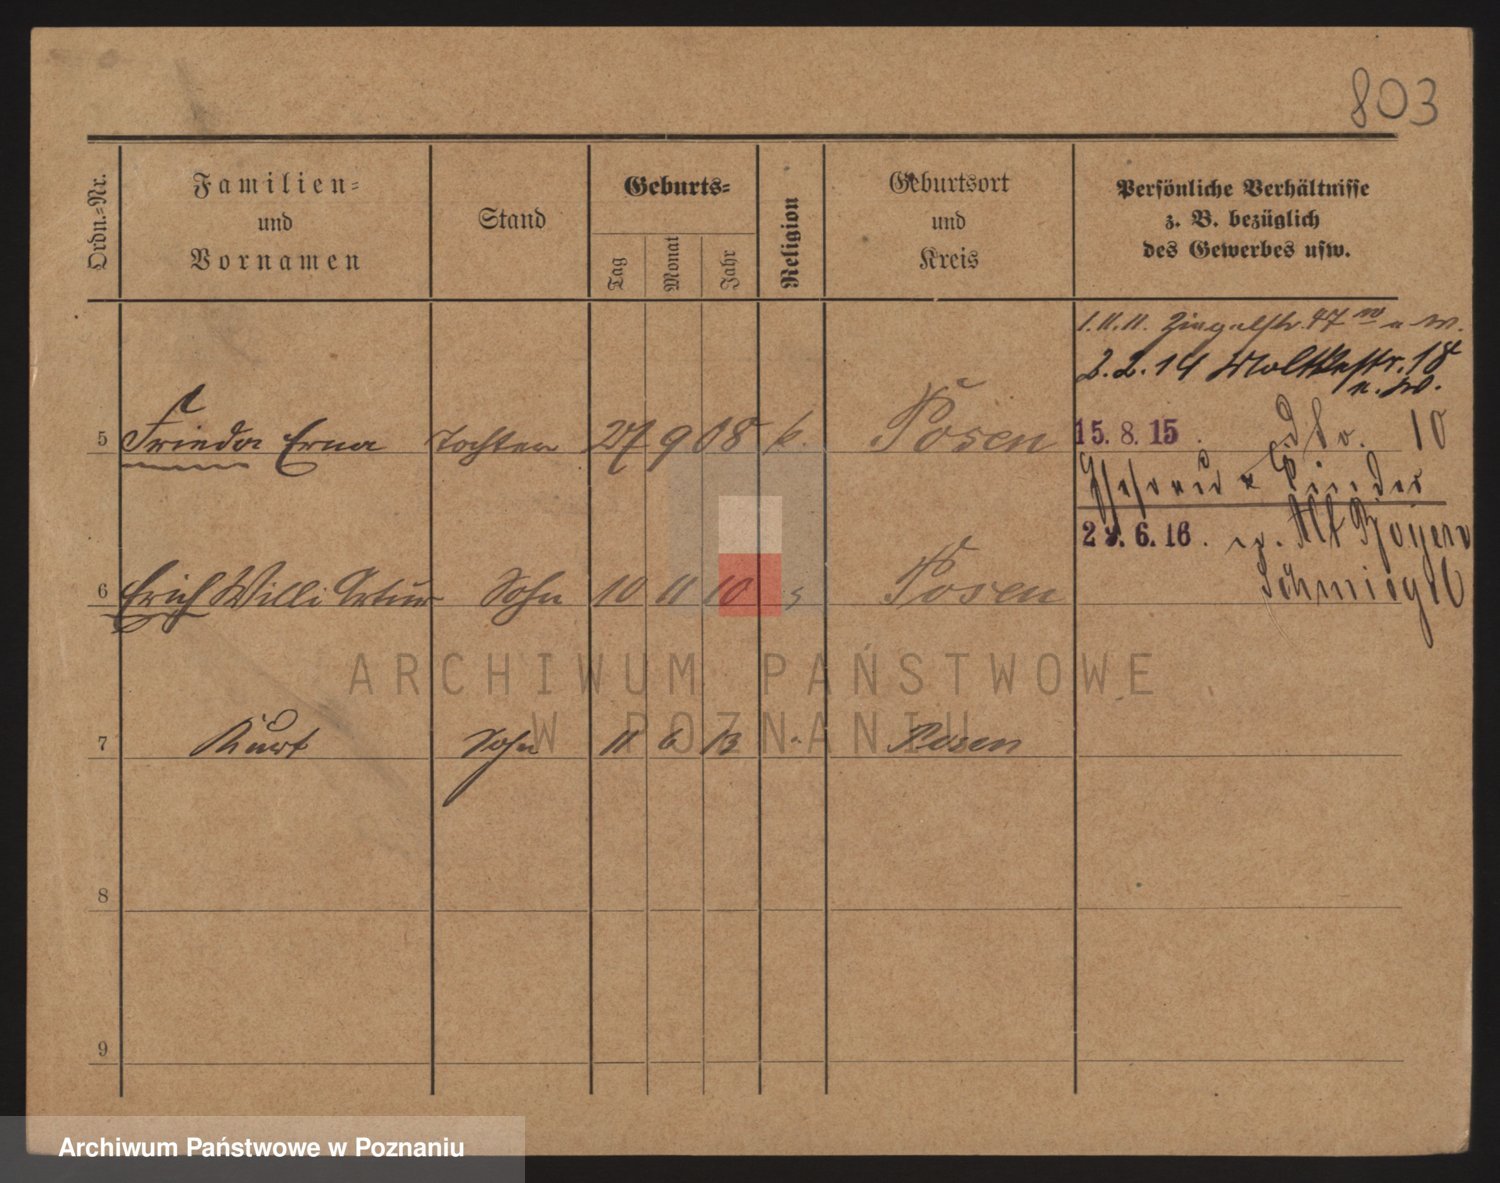 803
Ordn.=Nr.
Familien=
und
Vornamen
Stand
Geburts=
Tag
Monat
Jahr
Religion
Geburtsort
und
Kreis
Persönliche Verhältnisse
z. B. bezüglich
des Gewerbes usw.
1.11.11. Ziegelstr. 47
2.2.14 Moltkestr. 18
u. W.
5 Frieda Erna Tochter 27 9 08 k. Posen
15.8.15. dto. 10
Ehefrau u Kinder
6. 16.
6 Erich Willi Artur Sohn 10 11 10 Posen
7 Kurt Sohn 11 6 13 " Posen
8
9
ARCHIWUM PAŃSTWOWE
W POZNANIU
Archiwum Państwowe w Poznaniu